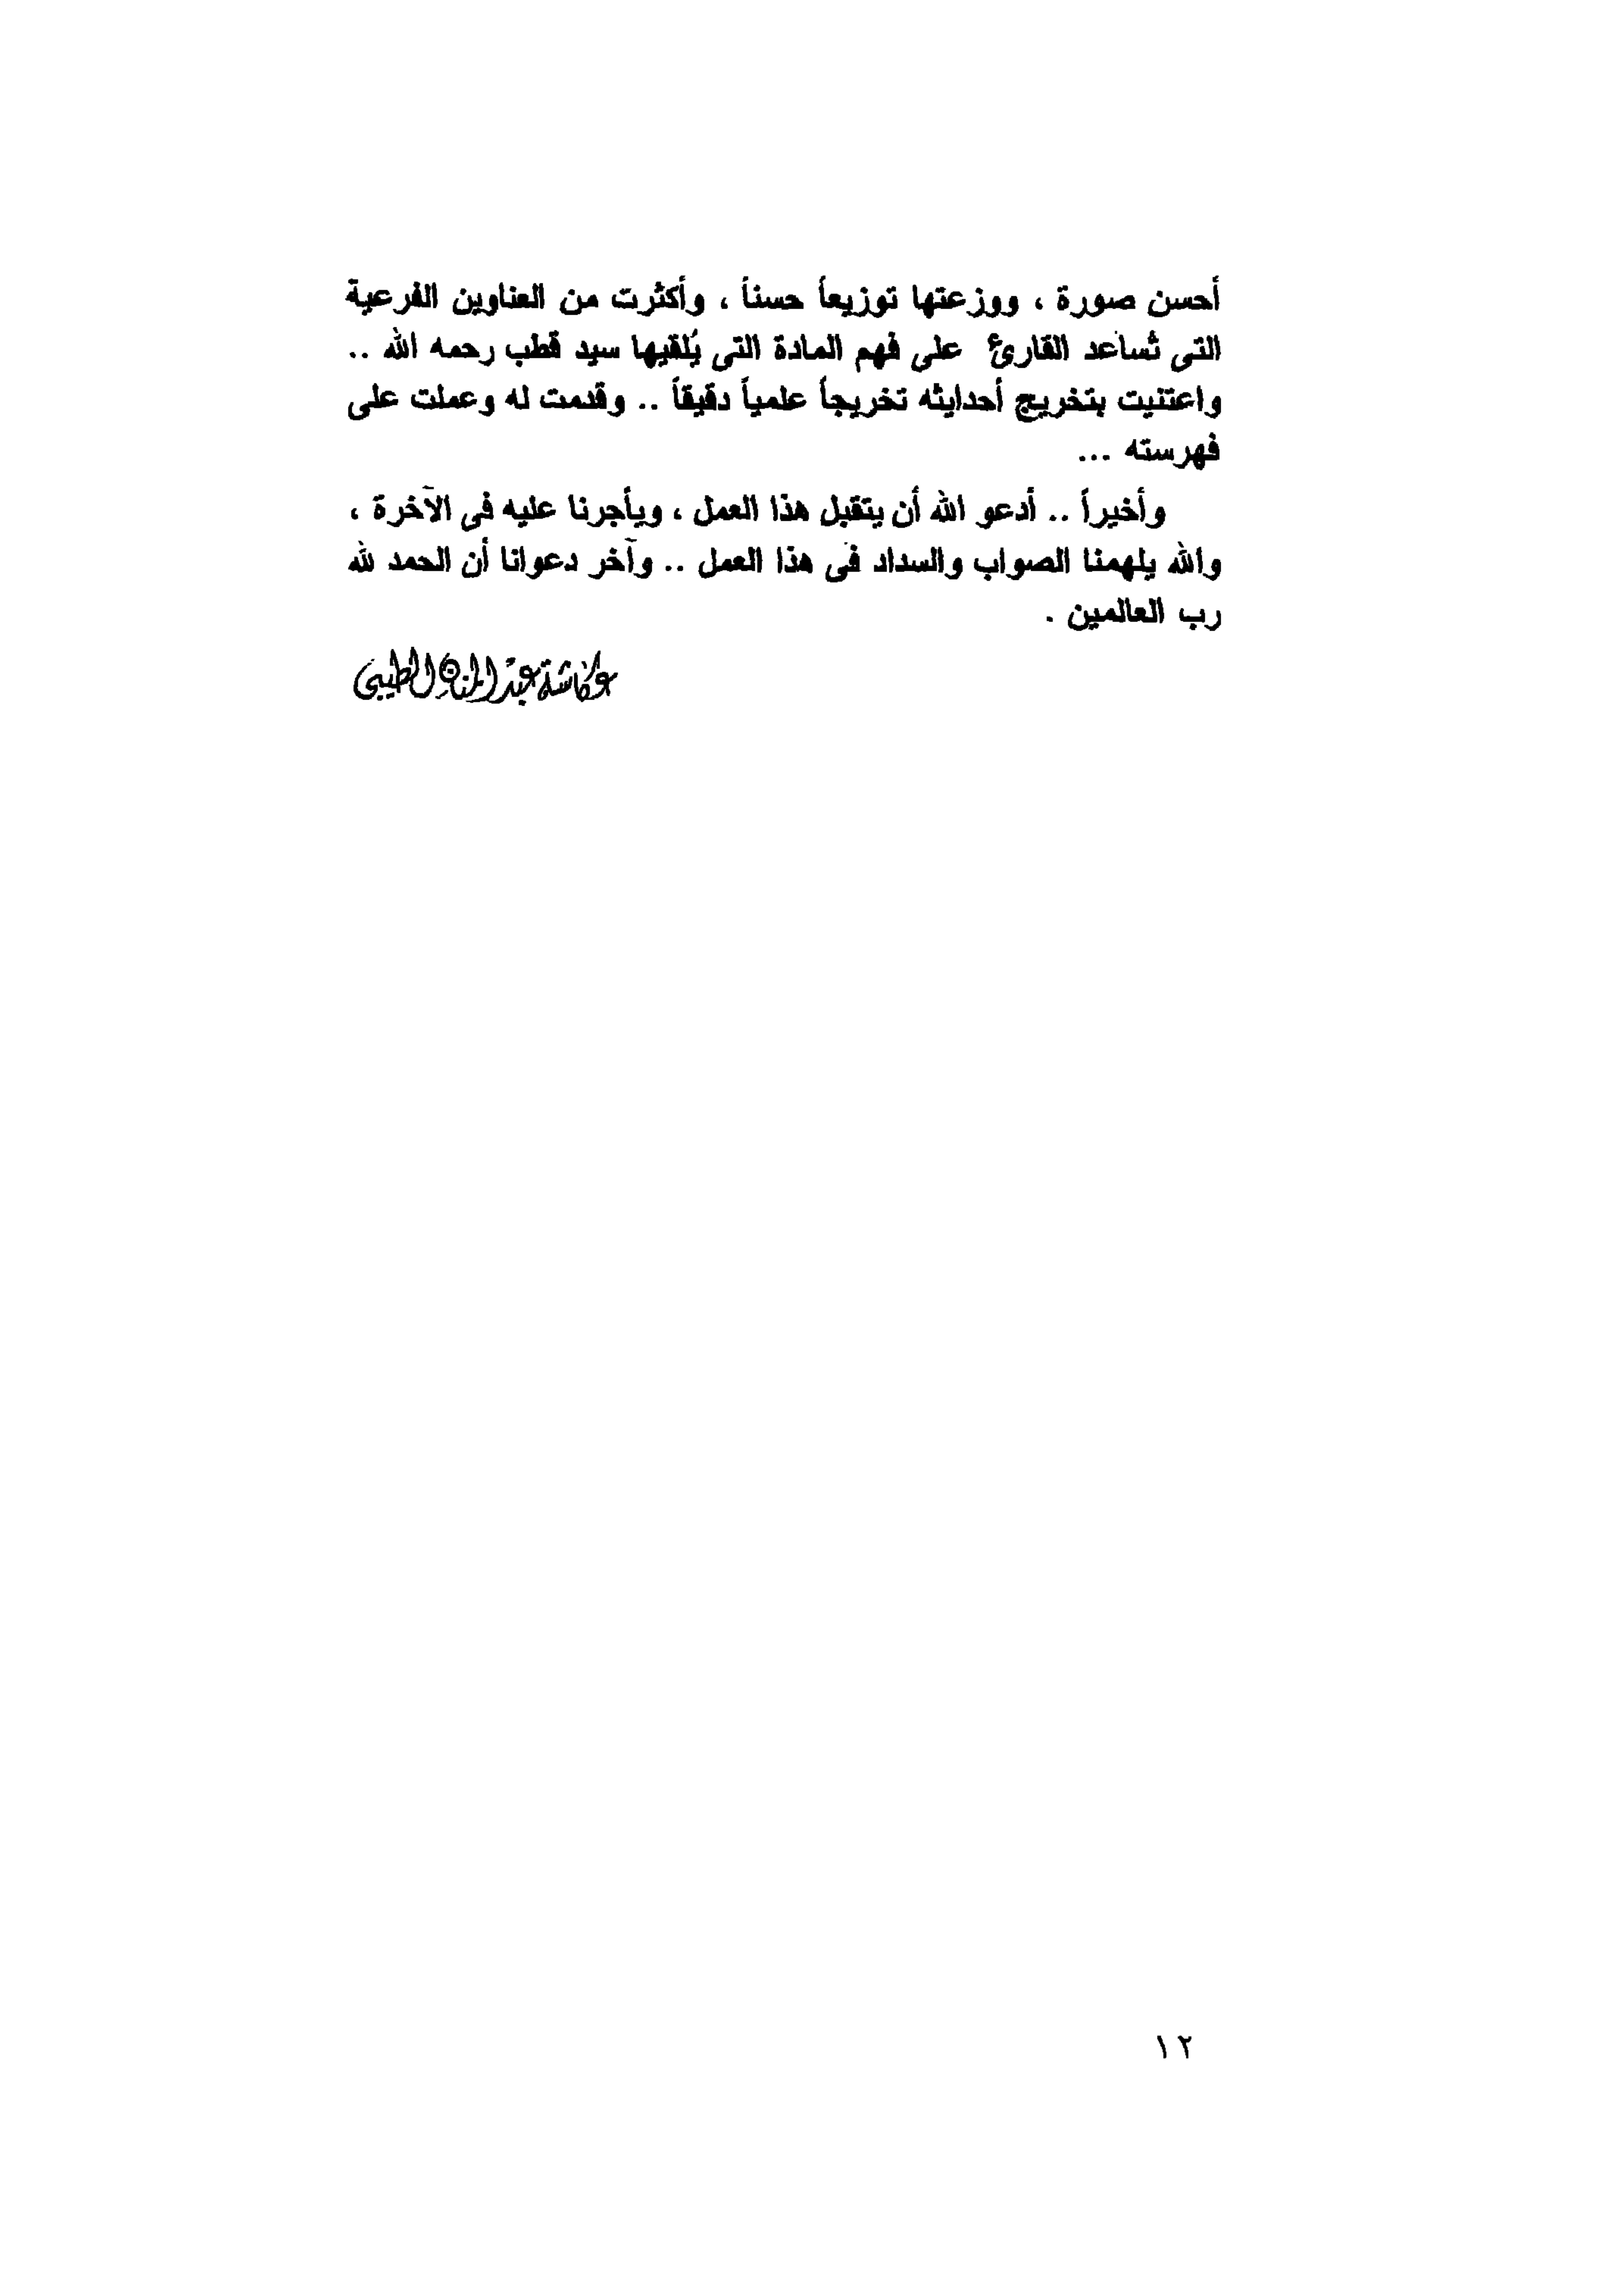 أحسن صورة ، ووزعتها توزيعاً حسناً ، وأكثرت من العناوين الفرعية
التى تُساعد القارئ على فهم المادة التى يُلقيها سيد قطب رحمه الله ..
واعتنيت بتخريج أحدايثه تخريجاً علمياً دقيقاً .. وقدمت له وعملت على
فهرسته ...
وأخيراً .. أدعو الله أن يتقبل هذا العمل ، ويأجرنا عليه فى الآخرة ،
والله يلهمنا الصواب والسداد فى هذا العمل .. وآخر دعوانا أن الحمد لله
رب العالمين .
عكاشة عبد المنان الطيبى
١٢